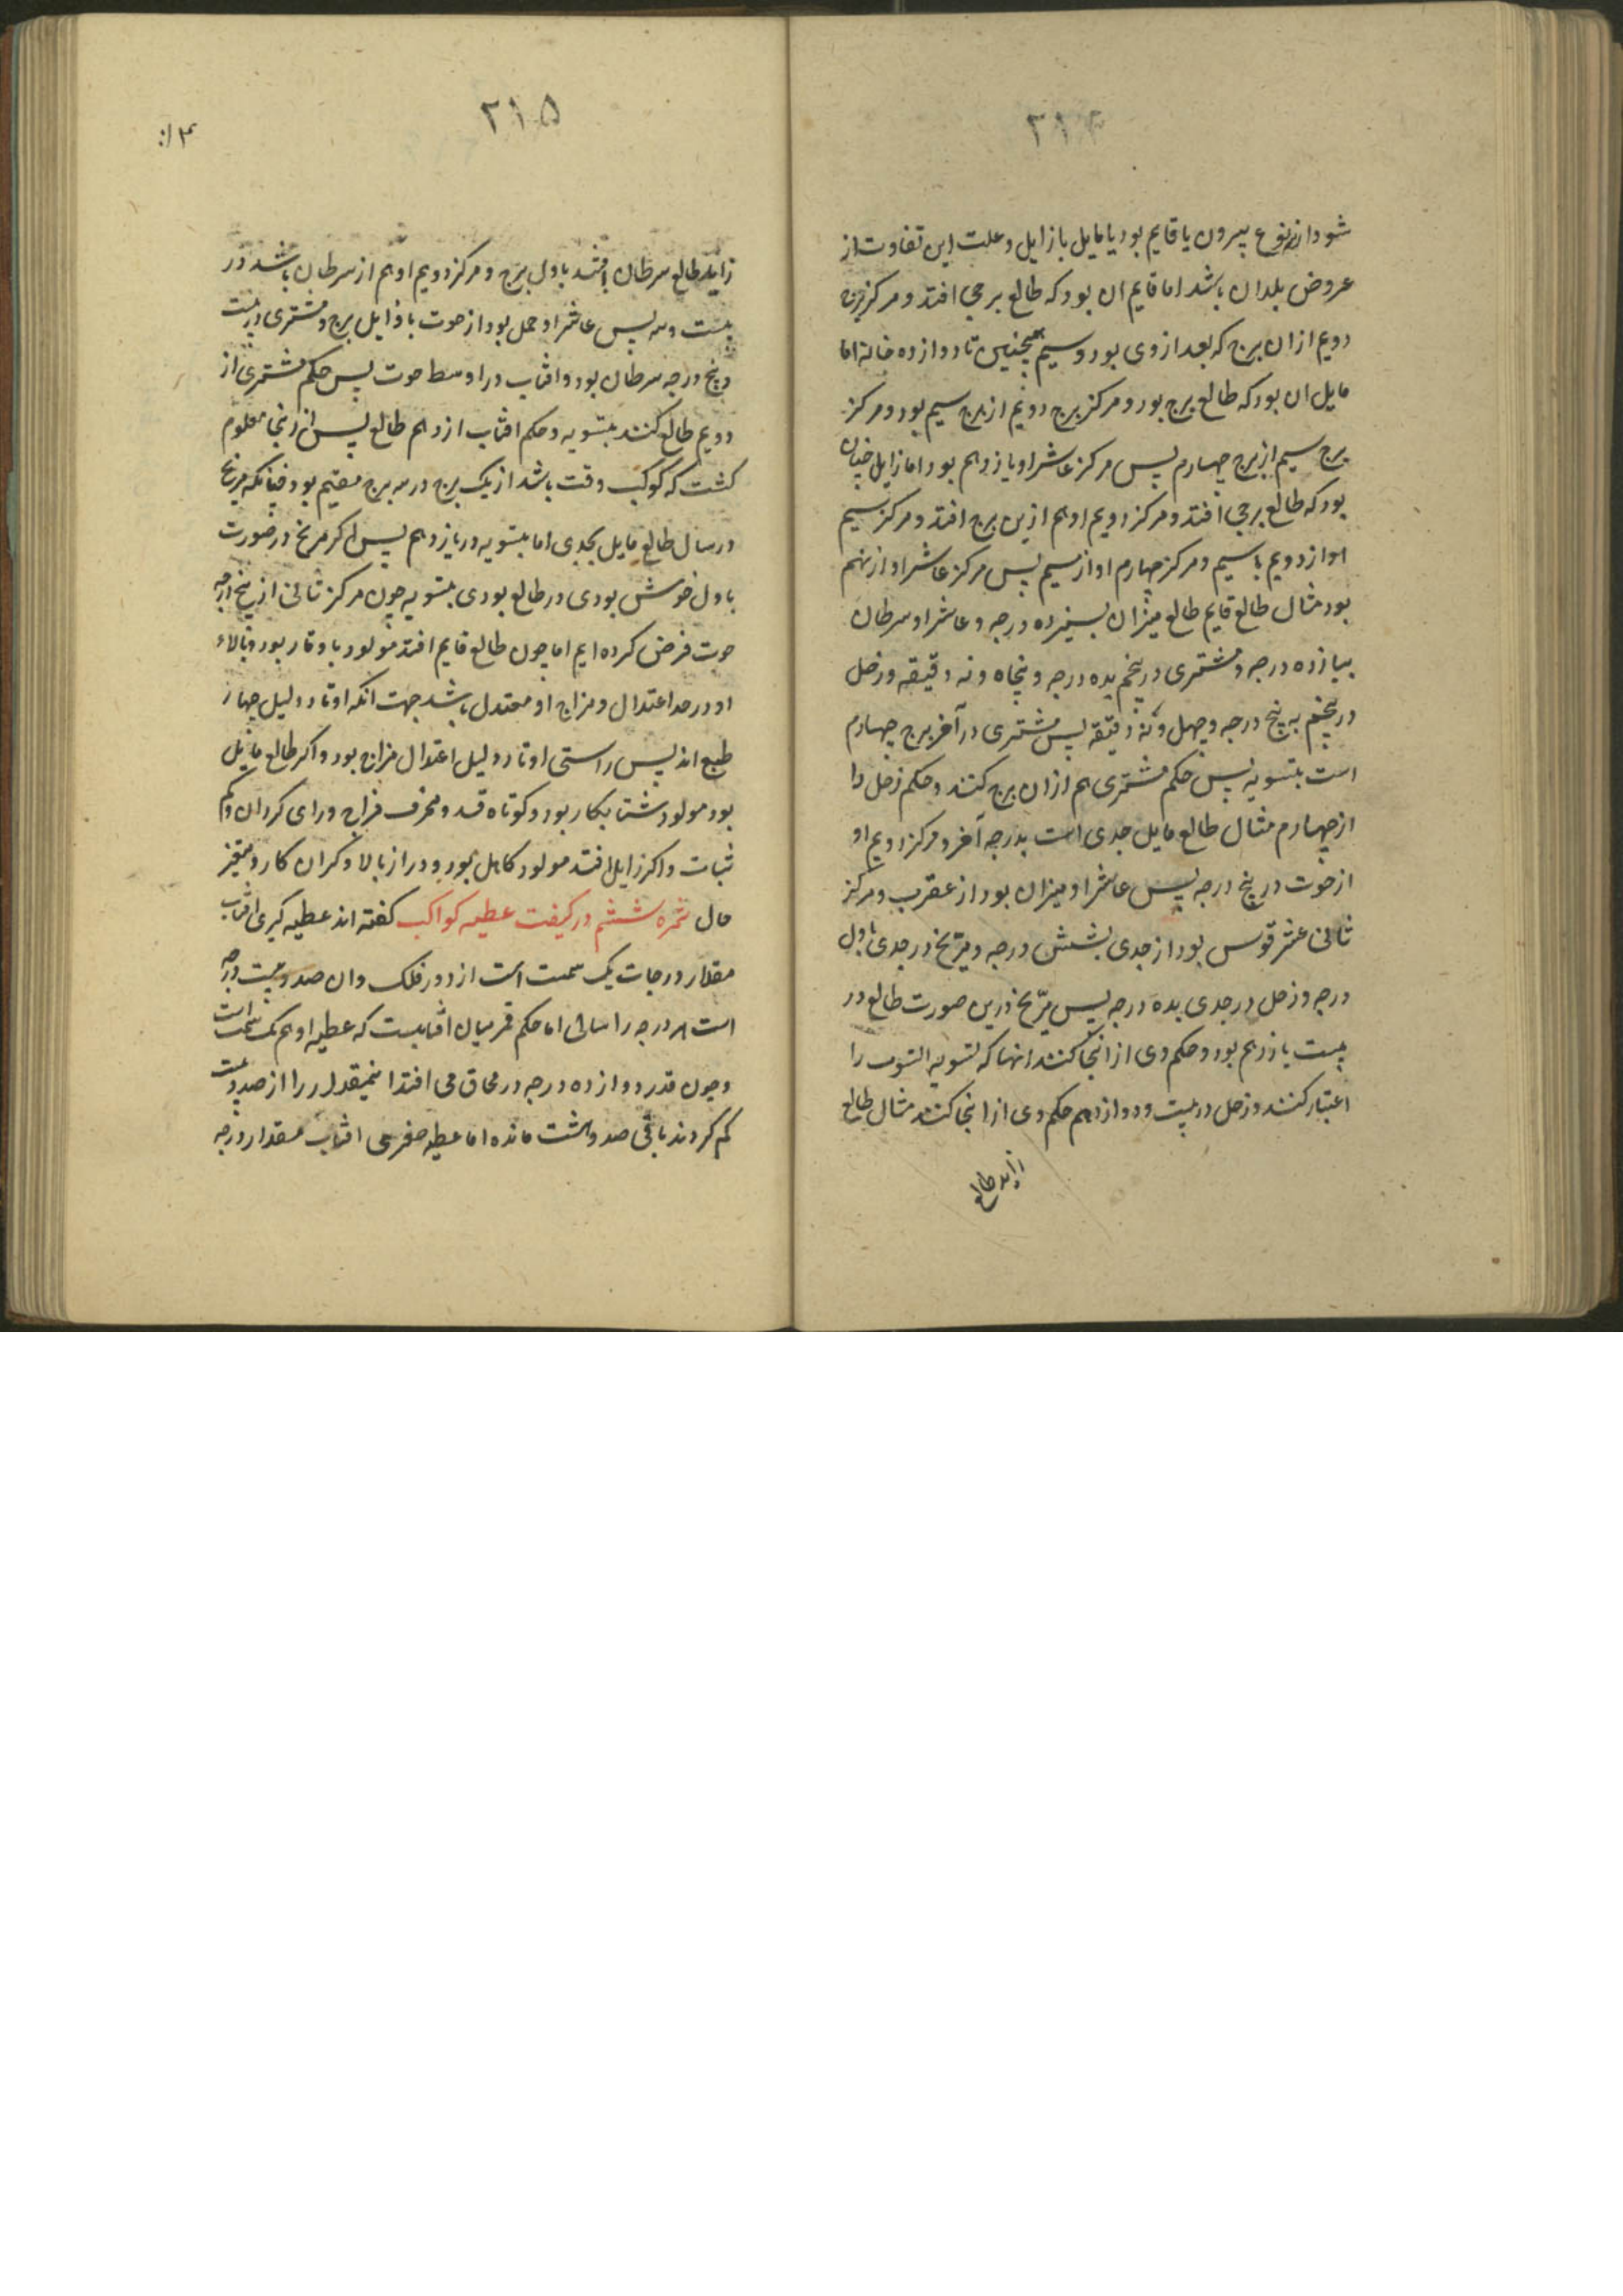 ۲۱۴
شود از نوع بیرون یا قایم بود یا مایل یا زایل و علت این تفاوت از
عروض بلدان باشد اما قایم ان بود که طالع برجی افتد و مرکز برج
دویم ازان برج که بعد از وی بود و سیم همچنین تا دوازده خانه اما
مایل ان بود که طالع برج بود و مرکز برج دویم از برج سیم بود و مرکز
برج سیم از برج چهارم پس مرکز عاشر او یازدهم بود اما زایل چنان
بود که طالع برجی افتد و مرکز دویم او هم ازین برج افتد و مرکز سیم
او از دویم یا سیم و مرکز چهارم او از سیم پس مرکز عاشر او از نهم
بود مثال طالع قایم طالع میزان بسیزده درجه و عاشر او سرطان
بپازده درجه و مشتری در پنجم بده درجه و پنجاه و نه دقیقه و زحل
در پنجم به پنج درجه و چهل و نه دقیقه پس مشتری در آخر برج چهارم
است بتسویه پس حکم مشتری هم ازان برج کنند و حکم زحل را
از چهارم مثال طالع مایل جدی است بدرجه آخر و مرکز دویم او
از حوت در پنج درجه پس عاشر او میزان بود از عقرب و مرکز
ثانی عشر قوس بود از جدی بشش درجه و مریخ در جدی باول
درجه و زحل در جدی بده درجه پس مریخ درین صورت طالع در
بیت یازدهم بود و حکم وی از انجا کنند انها که تسویه البیوت را
اعتبار کنند و زحل در بیت دوازدهم حکم وی از انجا کنند مثال طالع
زاید طالع
۲۱۵
زاید طالع سرطان افتد باول برج و مرکز دویم او هم از سرطان باشد در
بیست و سه پس عاشر او حمل بود از حوت باوایل برج و مشتری در بیست
و پنج درجه سرطان بود و افتاب در اوسط حوت پس حکم مشتری از
دویم طالع کنند بتسویه و حکم افتاب از دهم طالع پس ازینجا معلوم
کشت که کوکب وقت باشد از یک برج در سه برج مقیم بود چنانکه مریخ
در مثال طالع مایل بجدی اما بتسویه در یازدهم پس اکر مریخ در صورت
باول خوش بودی در طالع بودی بتسویه چون مرکز ثانی از پنج درجه
حوت فرض کرده ایم اما چون طالع قایم افتد مولود با وقار بود و بالاء
او در حد اعتدال و مزاج او معتدل باشد جهت انکه اوتاد دلیل چهار
طبع اند پس راستی اوتاد دلیل اعتدال مزاج بود و اکر طالع مایل
بود مولود شتابکار بود و کوتاه قد و محرف مزاج و رای کردان و کم
ثبات و اکر زایل افتد مولود کاهل بود و دراز بالا و کران کار و متغیر
حال ثمره ششم در کیفت عطیه کواکب کفته اند عطیه کبری افتاب
مقدار درجات یک سمت است از دور فلک و ان صد و بیست درجه
است هر درجه را سالی اما حکم قمر میان افتابست که عطیه او هم یک سمت است
و چون قدر دوازده درجه در محاق می افتد اینمقدار را از صد و بیست
کم کردند باقی صد و هشت مانده اما عطیه صغری افتاب مقدار درجه